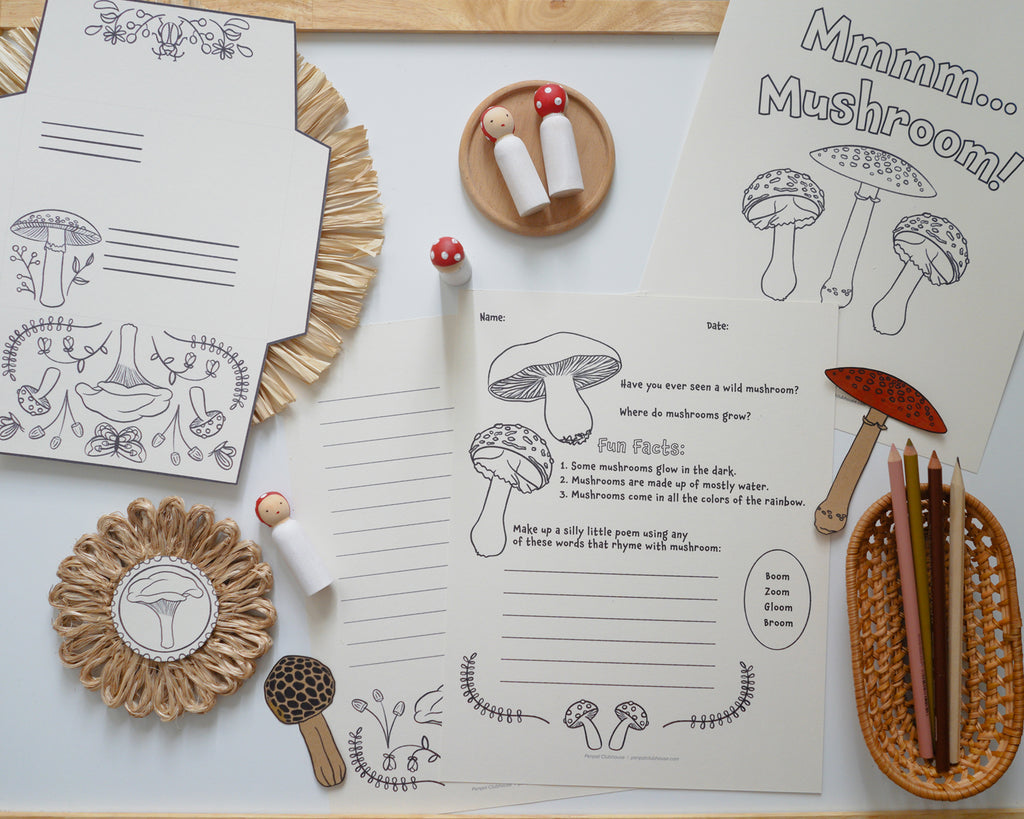 Mmmm...
Mushroom!
Name:
Date:
Have you ever seen a wild mushroom?
Where do mushrooms grow?
Fun Facts:
1. Some mushrooms glow in the dark.
2. Mushrooms are made up of mostly water.
3. Mushrooms come in all the colors of the rainbow.
Make up a silly little poem using any
of these words that rhyme with mushroom:
Boom
Zoom
Gloom
Broom
Penpal Clubhouse | penpalclubhouse.com
Penpal Clubhouse